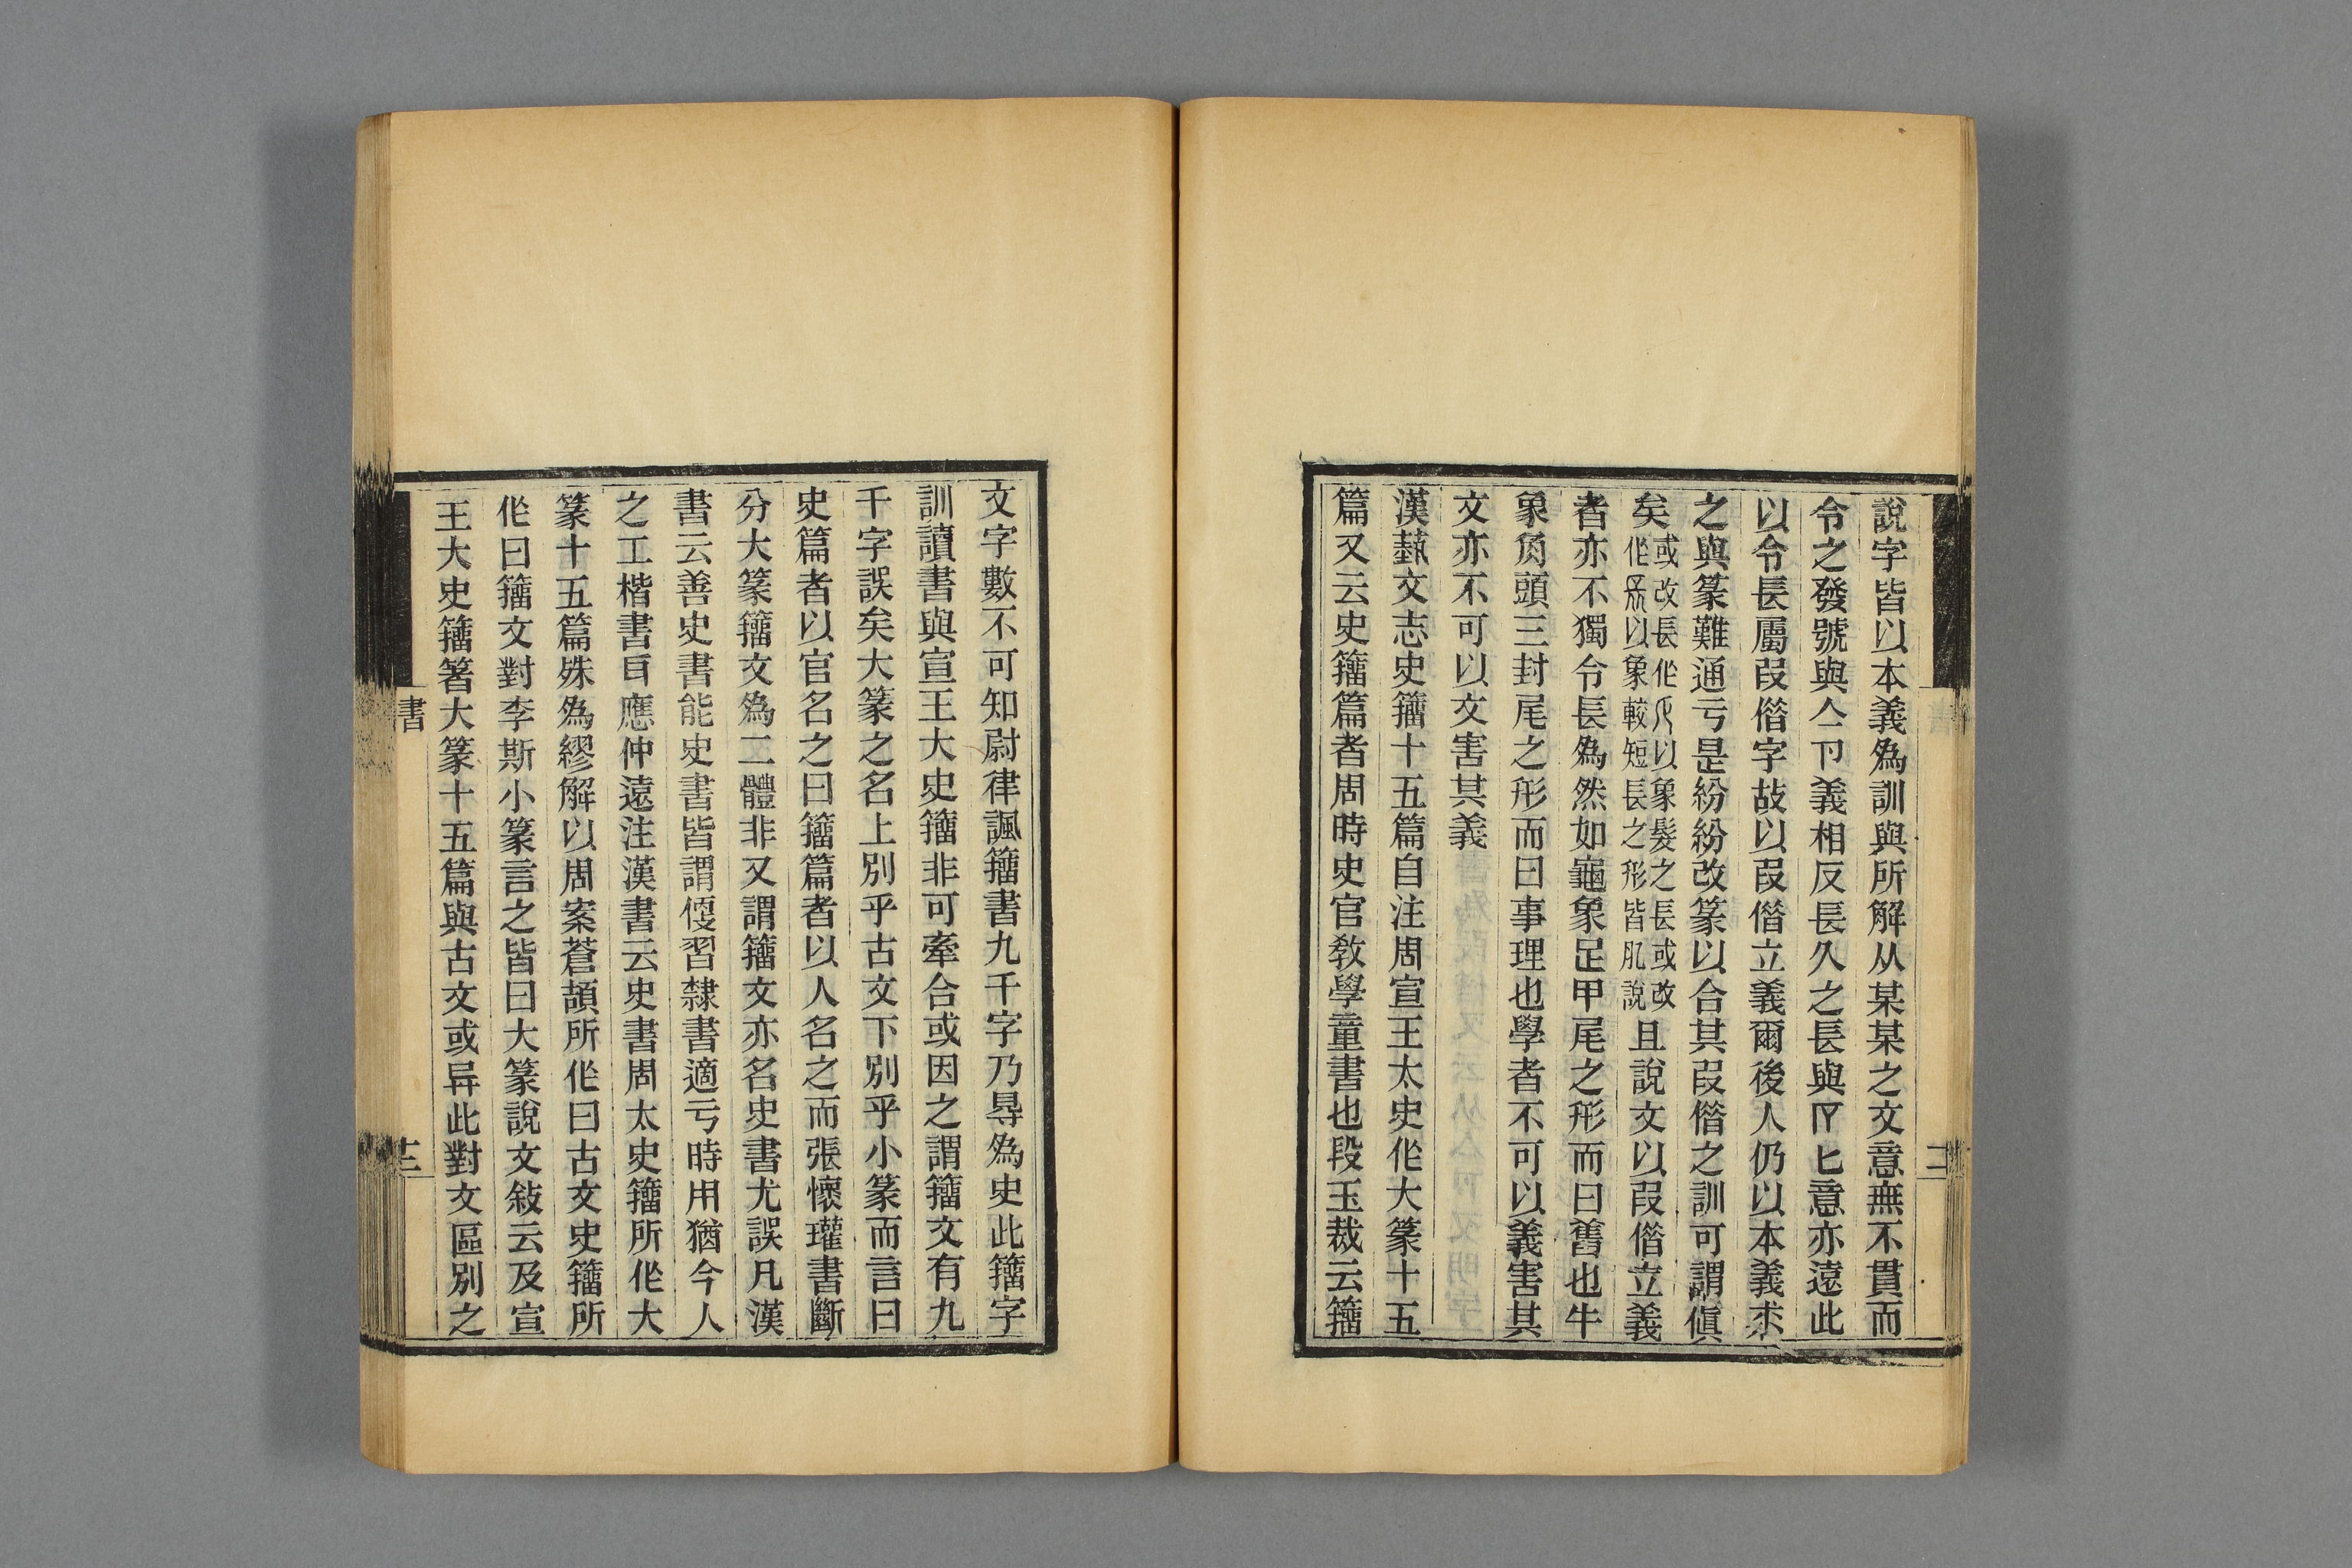 說字皆以本義爲訓與所解从某某之文意無不貫而
令之發號與亼卩義相反長久之長與𠑷匕意亦遠此
以令長屬叚借字故以叚借立義爾後人仍以本義求
之與篆難通亏是紛紛改篆以合其叚借之訓可謂傎
矣或改長作𠤎以象髮之長或改
作𠑷以象較短長之形皆肊說且說文以叚借立義
者亦不獨令長爲然如龜象足甲尾之形而曰舊也牛
象角頭三封尾之形而曰事理也學者不可以義害其
文亦不可以文害其義
漢藝文志史籒十五篇自注周宣王太史作大篆十五
篇又云史籒篇者周時史官敎學童書也段玉裁云籒
文字數不可知尉律諷籒書九千字乃㝵爲史此籒字
訓讀書與宣王大史籒非可牽合或因之謂籒文有九
千字誤矣大篆之名上別乎古文下別乎小篆而言曰
史篇者以官名之曰籒篇者以人名之而張懷瓘書斷
分大篆籒文爲二體非又謂籒文亦名史書尤誤凡漢
書云善史書能史書皆謂便習隸書適亏時用猶今人
之工楷書㠯應仲遠注漢書云史書周太史籒所作大
篆十五篇殊爲繆解以周案蒼頡所作曰古文史籒所
作曰籒文對李斯小篆言之皆曰大篆說文敍云及宣
王大史籒箸大篆十五篇與古文或异此對文區別之
書
十二